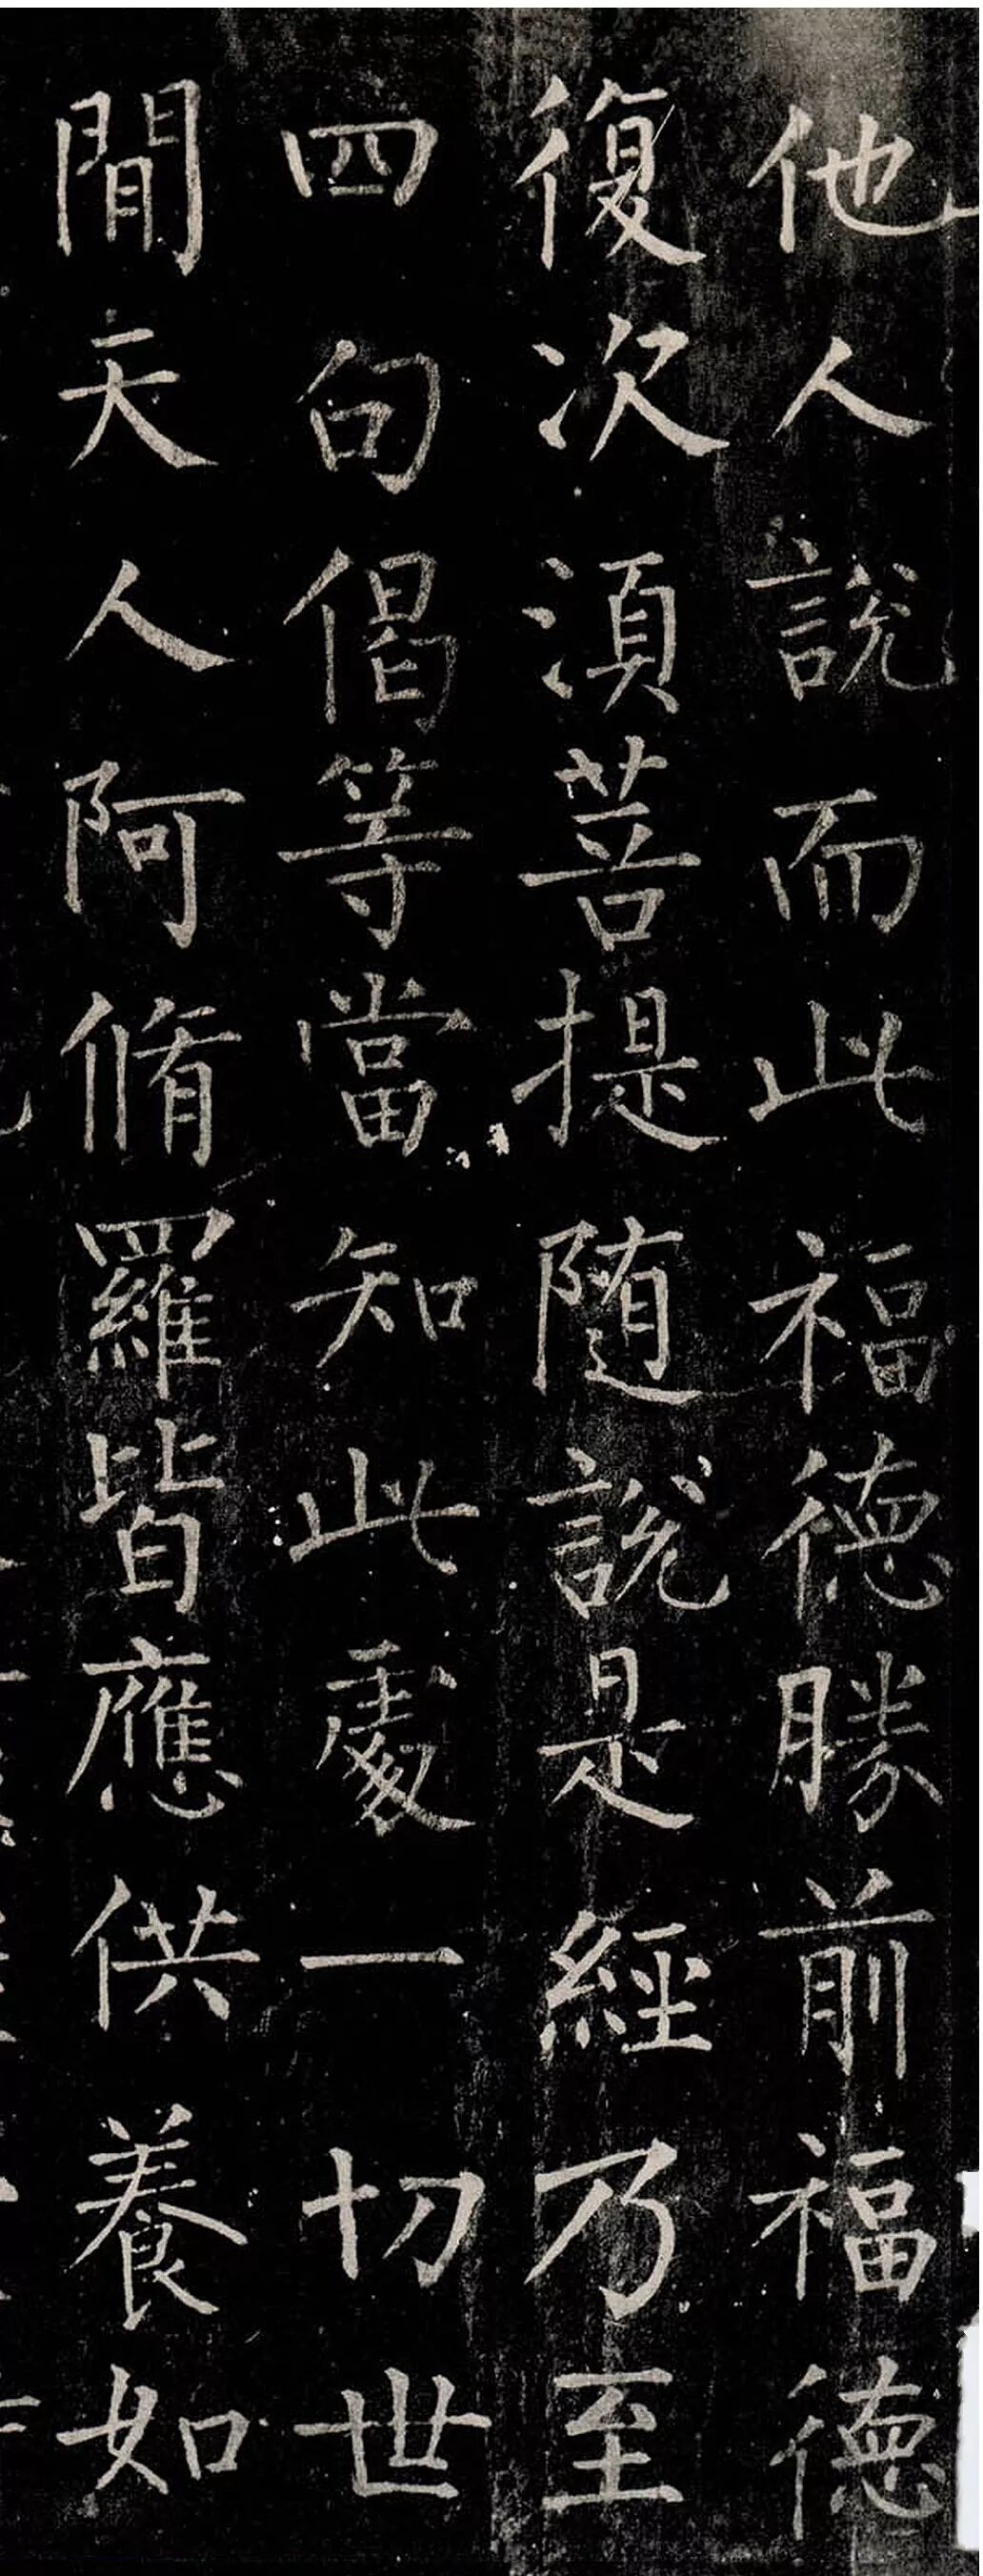 他人說而此福德勝前福德
復次須菩提随說是經乃至
四句偈等當知此處一切世
間天人阿脩羅皆應供養如